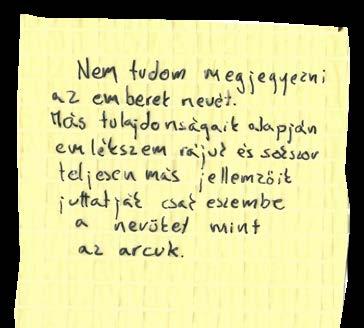 Nem tudom megjegyezni
az emberek nevét.
Más tulajdonságaik alapján
emlékszem rájuk és sokszor
teljesen más jellemzőik
juttatják csak eszembe
a nevüket mint
az arcuk.